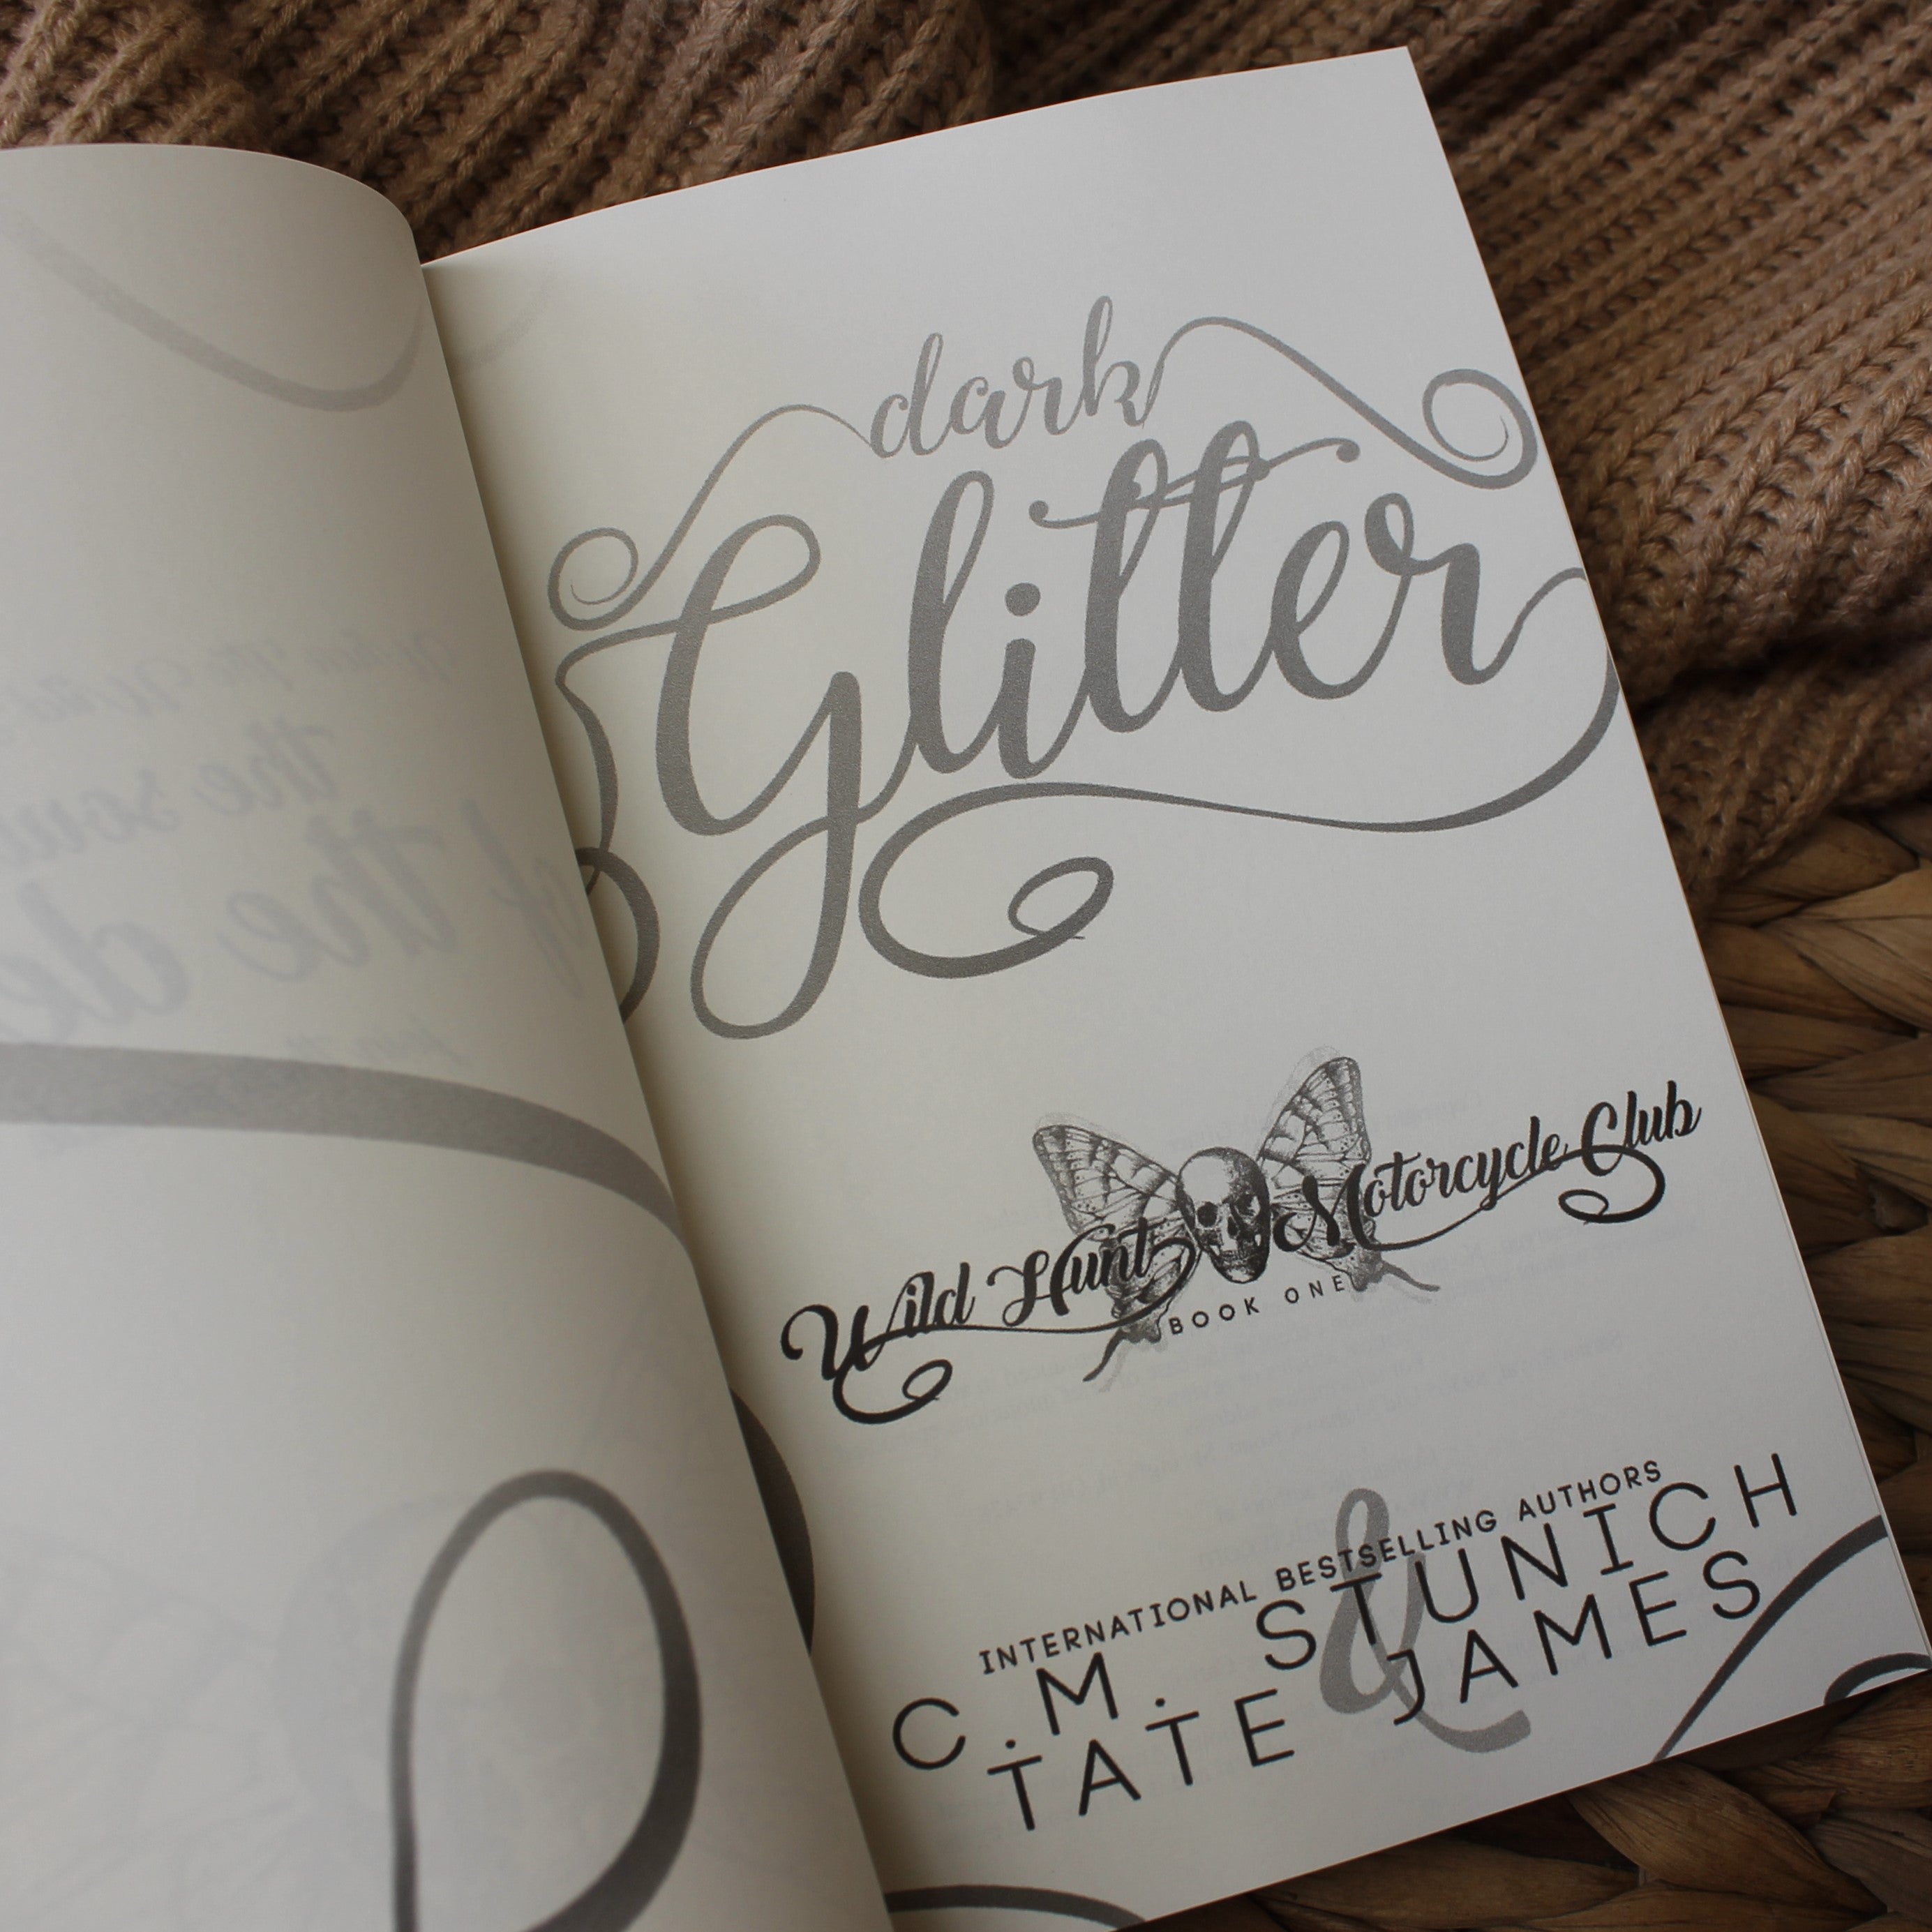 dark
Glitter
Wild Hunt Motorcycle Club
BOOK ONE
INTERNATIONAL BESTSELLING AUTHORS
C.M. STUNICH
&
TATE JAMES